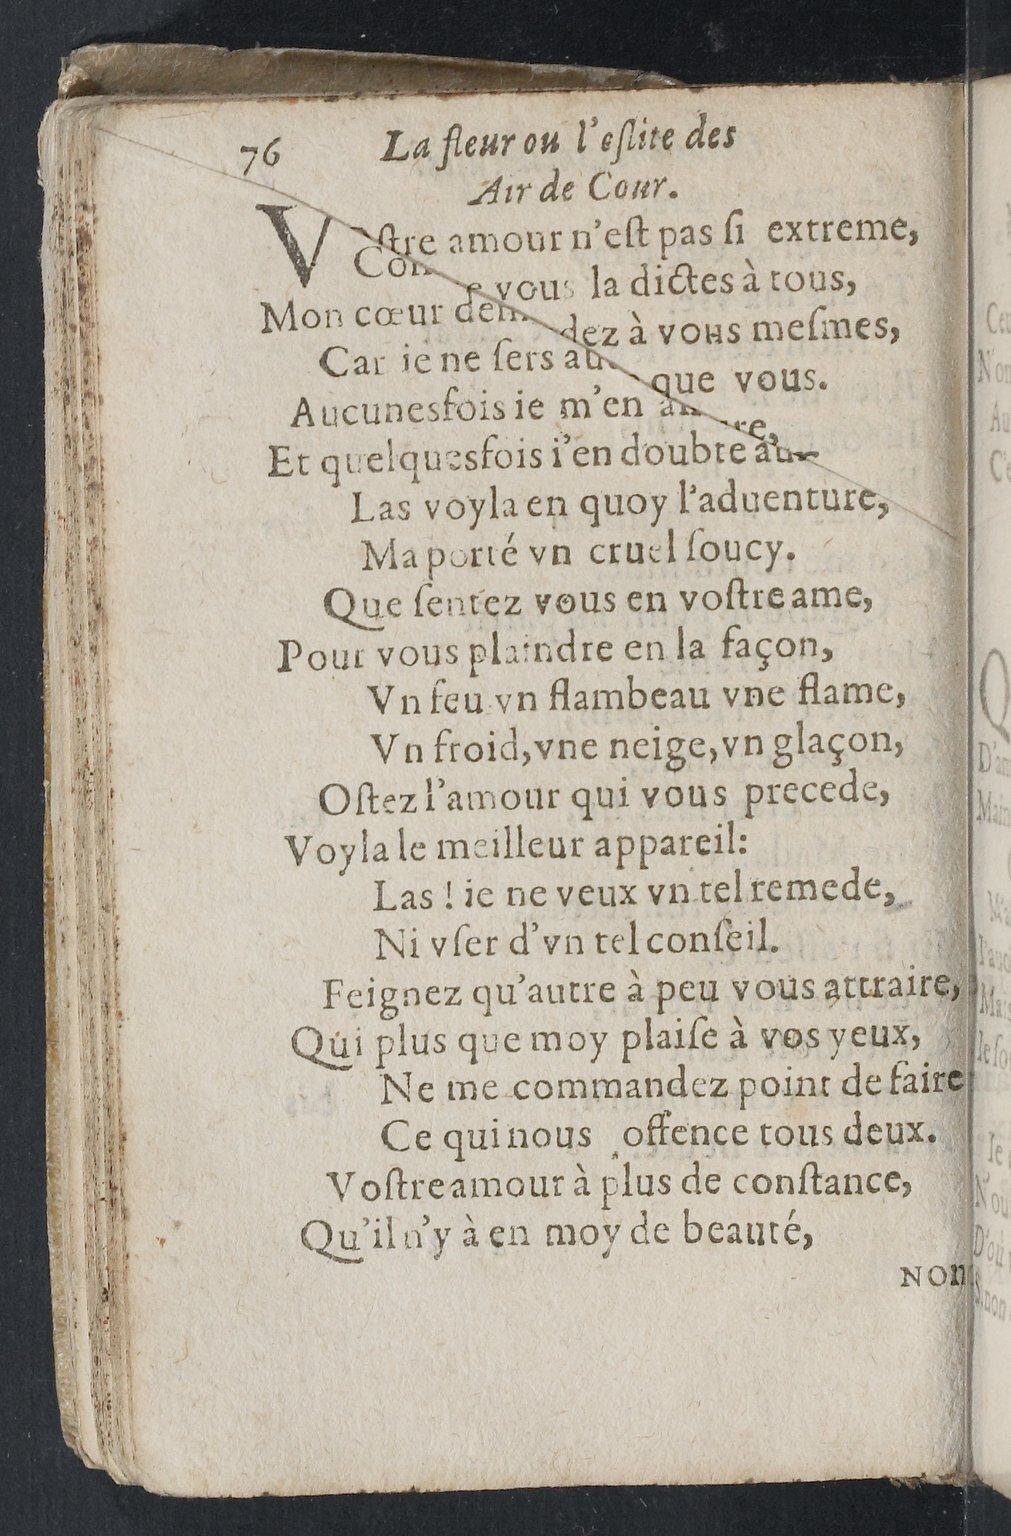 76 La fleur ou l'eſlite des
Air de Cour.
Voſtre amour n'eſt pas ſi extreme,
vous la dictes à tous,
Mon cœur demandez à vous meſmes,
Car ie ne ſers que vous.
Aucunesfois ie m'en
Et quelquesfois i'en doubte
Las voyla en quoy l'aduenture,
Ma porté vn cruel ſoucy.
Que ſentez vous en voſtre ame,
Pour vous plaindre en la façon,
Vn feu vn flambeau vne flame,
Vn froid, vne neige, vn glaçon,
Oſtez l'amour qui vous precede,
Voyla le meilleur appareil:
Las ! ie ne veux vn tel remede,
Ni vſer d'vn tel conſeil.
Feignez qu'autre à peu vous attraire,
Qui plus que moy plaiſe à vos yeux,
Ne me commandez point de faire
Ce qui nous offence tous deux.
Voſtre amour à plus de conſtance,
Qu'il n'y à en moy de beauté,
NON